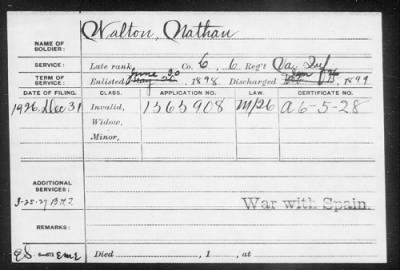 Walton, Nathan
NAME OF SOLDIER:
SERVICE: Late rank, Co. G, 6 Reg't Va. Inf
TERM OF SERVICE: Enlisted June 30, 1898 Discharged 1899
DATE OF FILING. CLASS. APPLICATION NO. LAW. CERTIFICATE NO.
1926 Dec 31 Invalid, 1565908 M/26 A 6-5-28
Widow,
Minor,
ADDITIONAL SERVICES:
War with Spain.
REMARKS:
Died , 1 , at